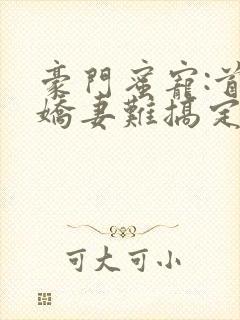 豪門蜜寵:首
嬌妻難搞定
可大可小